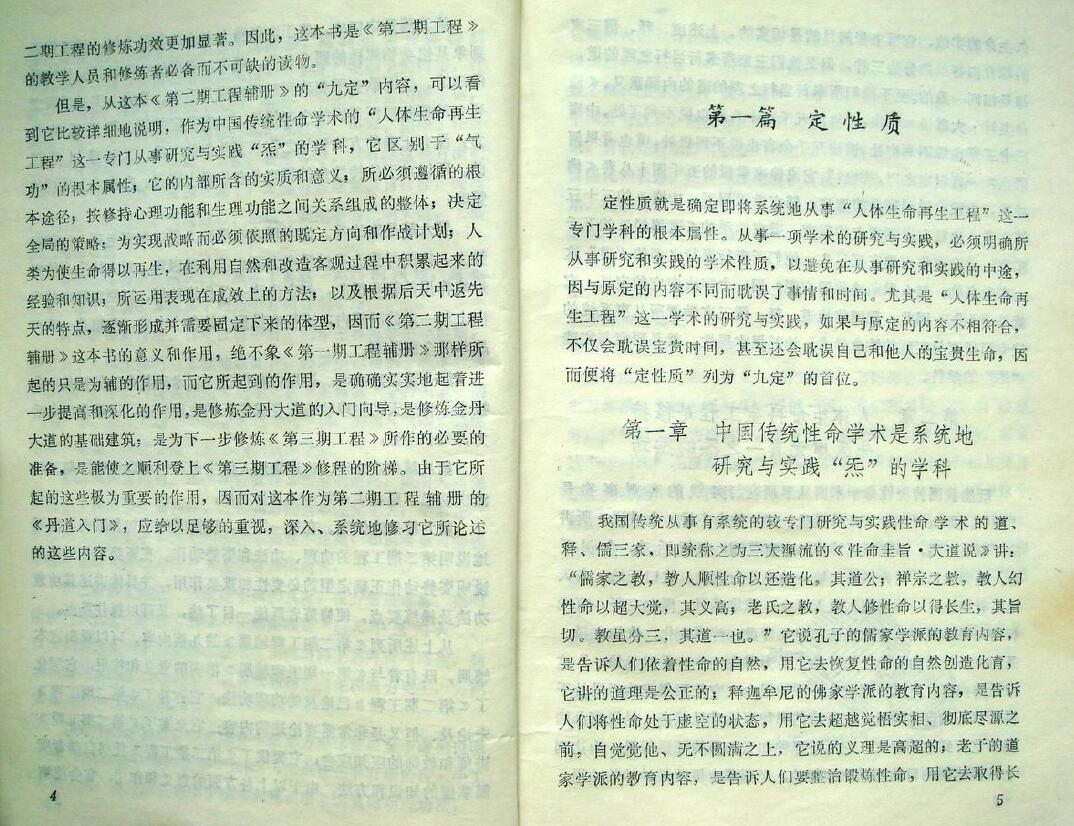 二期工程的修炼功效更加显著。因此，这本书是《第二期工程》
的教学人员和修炼者必备而不可缺的读物。
但是，从这本《第二期工程辅册》的“九定”内容，可以看
到它比较详细地说明，作为中国传统性命学术的“人体生命再生
工程”这一专门从事研究与实践“炁”的学科，它区别于“气
功”的根本属性；它的内部所含的实质和意义；所必须遵循的根
本途径；按修持心理功能和生理功能之间关系组成的整体；决定
全局的策略；为实现战略而必须依照的既定方向和作战计划；人
类为使生命得以再生，在利用自然和改造客观过程中积累起来的
经验和知识；所运用表现在成效上的方法；以及根据后天中返先
天的特点，逐渐形成并需要固定下来的体型，因而《第二期工程
辅册》这本书的意义和作用，绝不象《第一期工程辅册》那样所
起的只是为辅的作用，而它所起到的作用，是确确实实地起着进
一步提高和深化的作用，是修炼金丹大道的入门向导，是修炼金丹
大道的基础建筑；是为下一步修炼《第三期工程》所作的必要的
准备，是能使之顺利登上《第三期工程》修程的阶梯。由于它所
起的这些极为重要的作用，因而对这本作为第二期工程辅册的
《丹道入门》，应给以足够的重视，深入、系统地修习它所论述
的这些内容。
4
第一篇 定性质
定性质就是确定即将系统地从事“人体生命再生工程”这一
专门学科的根本属性。从事一项学术的研究与实践，必须明确所
从事研究和实践的学术性质，以避免在从事研究和实践的中途，
因与原定的内容不同而耽误了事情和时间。尤其是“人体生命再
生工程”这一学术的研究与实践，如果与原定的内容不相符合，
不仅会耽误宝贵时间，甚至还会耽误自己和他人的宝贵生命，因
而便将“定性质”列为“九定”的首位。
第一章 中国传统性命学术是系统地
研究与实践“炁”的学科
我国传统从事有系统的较专门研究与实践性命学术的道、
释、儒三家，即统称之为三大源流的《性命圭旨·大道说》讲：
“儒家之教，教人顺性命以还造化，其道公；禅宗之教，教人幻
性命以超大觉，其义高；老氏之教，教人修性命以得长生，其旨
切。教虽分三，其道一也。”它说孔子的儒家学派的教育内容，
是告诉人们依着性命的自然，用它去恢复性命的自然创造化育，
它讲的道理是公正的；释迦牟尼的佛家学派的教育内容，是告诉
人们将性命处于虚空的状态，用它去超越觉悟实相、彻底尽源之
前，自觉觉他、无不圆满之上，它说的义理是高超的；老子的道
家学派的教育内容，是告诉人们要整治锻炼性命，用它去取得长
5